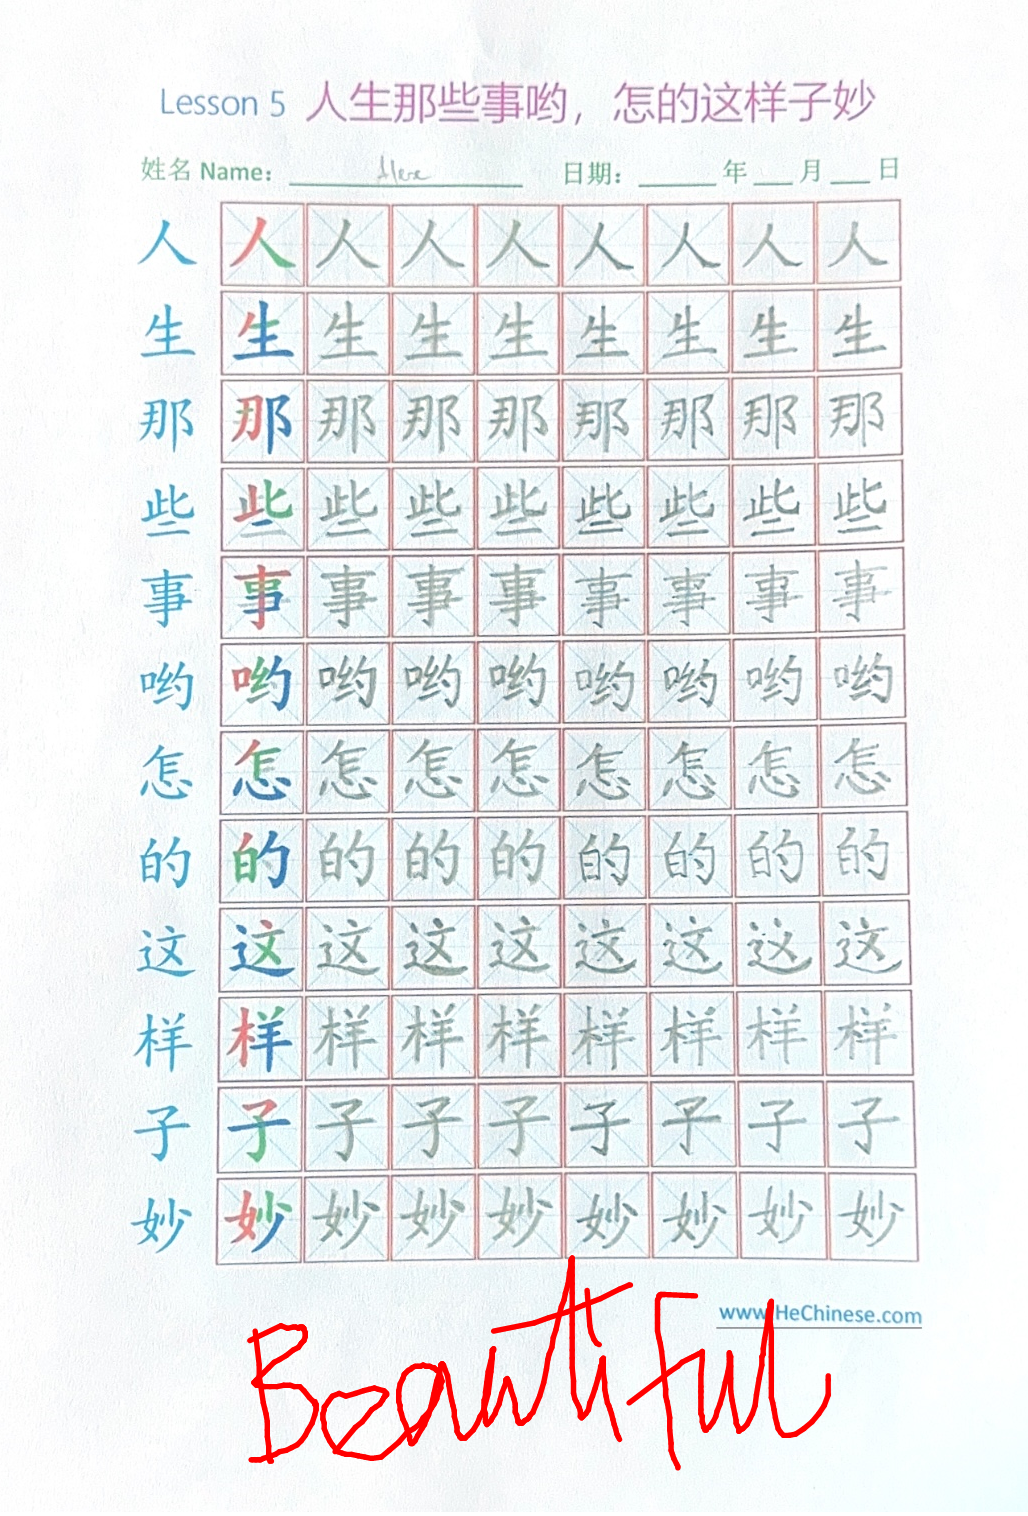 Lesson 5 人生那些事哟，怎的这样子妙
姓名 Name: 日期: 年 月 日
人 人 人 人 人 人 人 人 人
生 生 生 生 生 生 生 生 生
那 那 那 那 那 那 那 那 那
些 些 些 些 些 些 些 些 些
事 事 事 事 事 事 事 事 事
哟 哟 哟 哟 哟 哟 哟 哟 哟
怎 怎 怎 怎 怎 怎 怎 怎 怎
的 的 的 的 的 的 的 的 的
这 这 这 这 这 这 这 这 这
样 样 样 样 样 样 样 样 样
子 子 子 子 子 子 子 子 子
妙 妙 妙 妙 妙 妙 妙 妙 妙
www.HeChinese.com
Beautiful